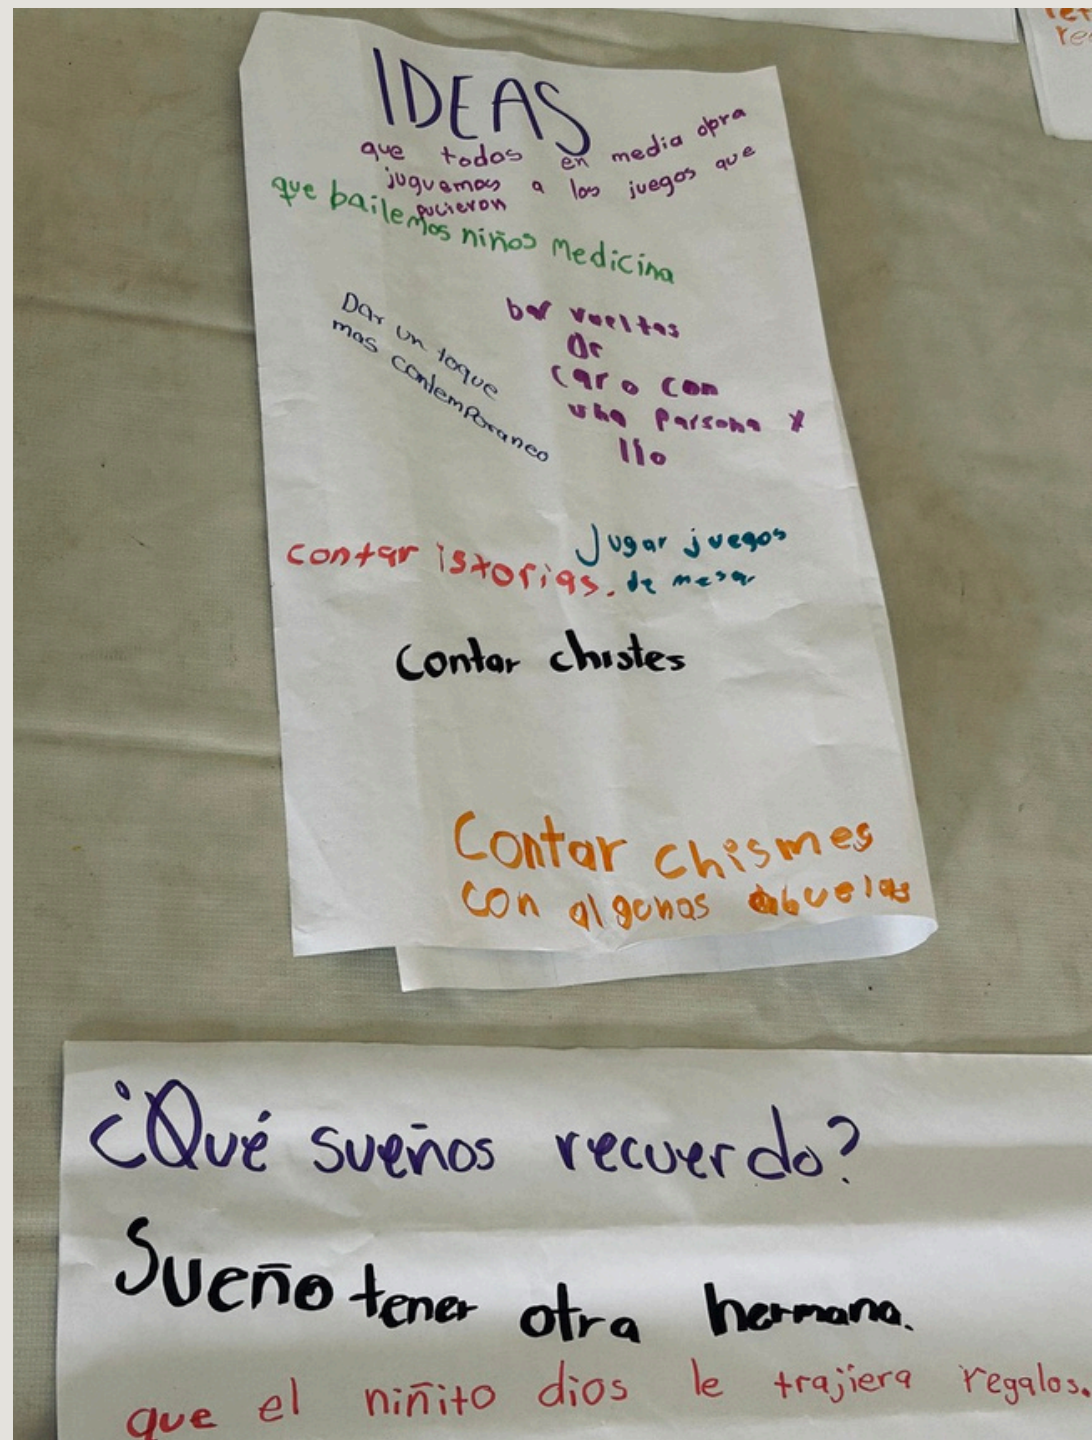 IDEAS
que todos en media obra
juguemos a los juegos que
pucieron
que bailemos niños medicina
Dar un toque
mas contemporaneo
bar vueltas
Or
caro con
una persona x
llo
Jugar juegos
de mesa
contar istorias.
Contar chistes
Contar chismes
con algunas abuelas
¿Qué sueños recuerdo?
Sueño tener otra hermana.
que el niñito dios le trajiera regalos.